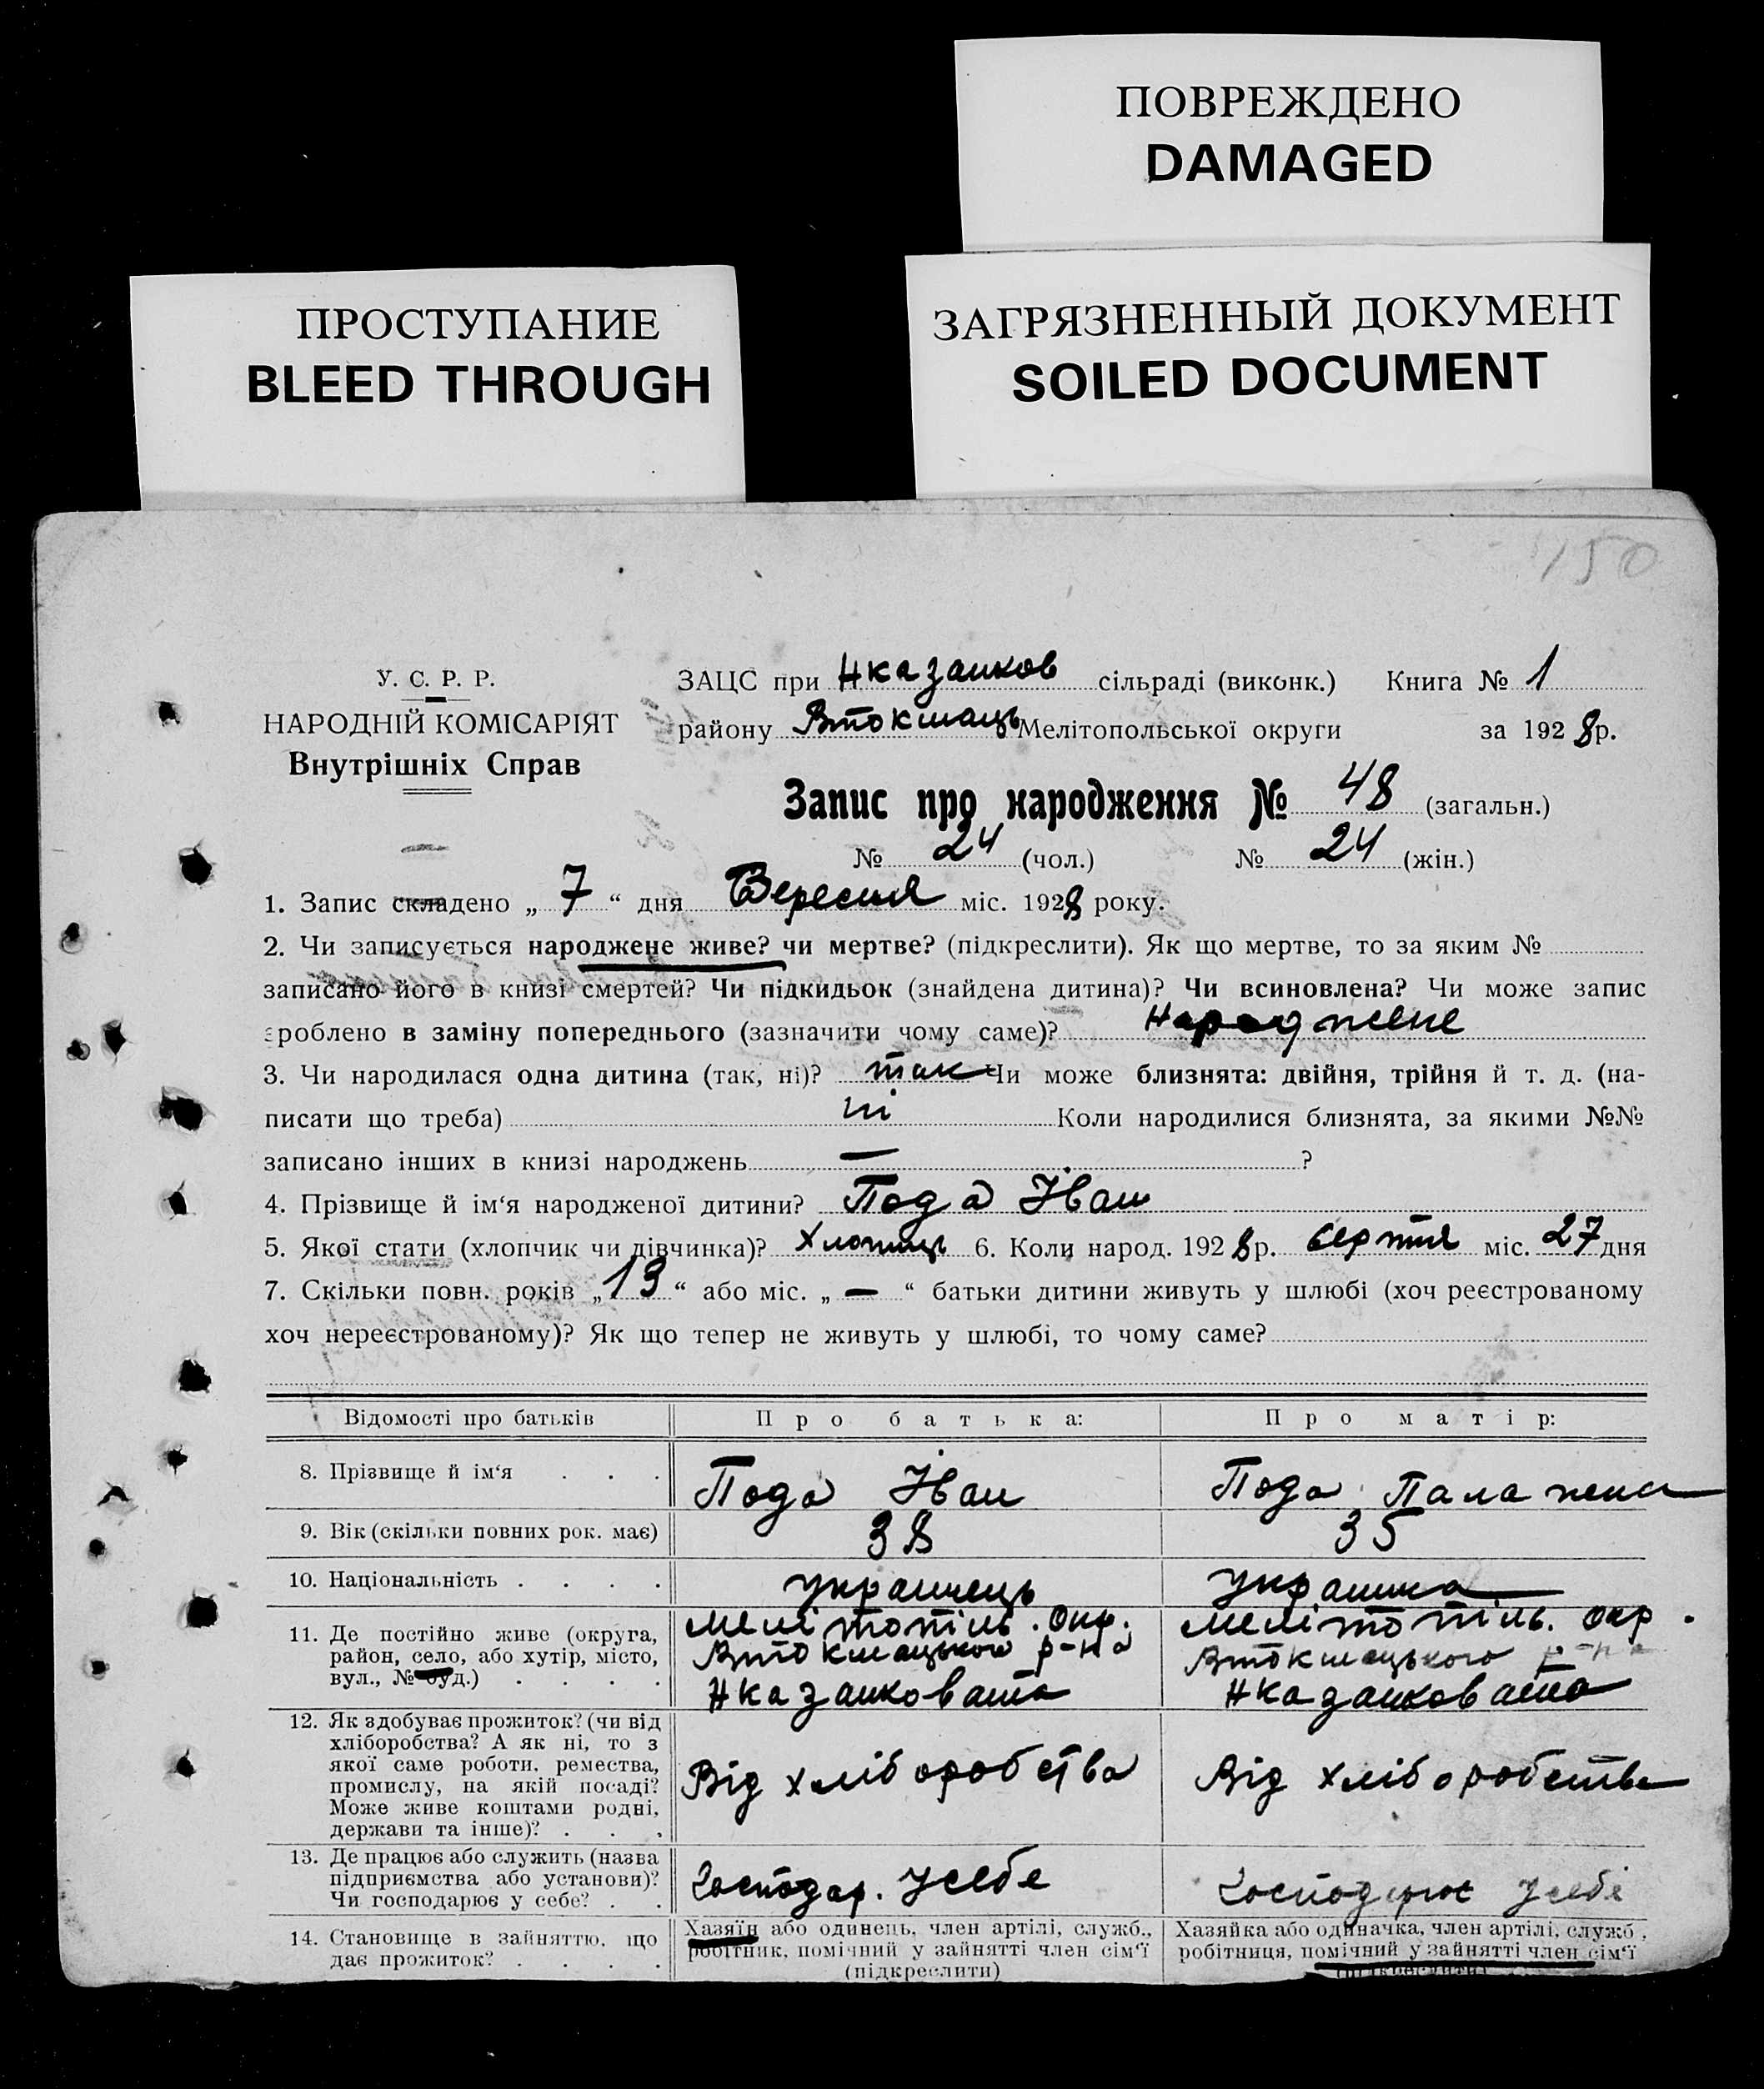 ПОВРЕЖДЕНО
DAMAGED
ПРОСТУПАНИЕ
BLEED THROUGH
ЗАГРЯЗНЕННЫЙ ДОКУМЕНТ
SOILED DOCUMENT
150
У. С. Р. Р.
НАРОДНІЙ КОМІСАРІЯТ
Внутрішніх Справ
ЗАЦС при Нказанков сільраді (виконк.) Книга № 1
району Втокмаць Мелітопольської округи за 1928 р.
Запис про народження № 48 (загальн.)
№ 24 (чол.) № 24 (жін.)
1. Запис складено „ 7 “ дня Вересня міс. 1928 року.
2. Чи записується народжене живе? чи мертве? (підкреслити). Як що мертве, то за яким №
записано його в книзі смертей? Чи підкидьок (знайдена дитина)? Чи всиновлена? Чи може запис
зроблено в заміну попереднього (зазначити чому саме)? Народжене
3. Чи народилася одна дитина (так, ні)? так Чи може близнята: двійня, трійня й т. д. (на-
писати що треба) ні Коли народилися близнята, за якими №№
записано інших в книзі народжень — ?
4. Прізвище й ім‘я народженої дитини? Пода Іван
5. Якої стати (хлопчик чи дівчинка)? Хлопець 6. Коли народ. 1928 р. серпня міс. 27 дня
7. Скільки повн. років „ 13 “ або міс. „ — “ батьки дитини живуть у шлюбі (хоч реєстрованому
хоч нереєстрованому)? Як що тепер не живуть у шлюбі, то чому саме?
Відомості про батьків Про батька: Про матір:
8. Прізвище й ім‘я . . . Пода Іван Пода Палажена
9. Вік (скільки повних рок. має) 38 35
10. Національність . . . . українець українка
11. Де постійно живе (округа,
район, село, або хутір, місто,
вул., № буд.) . . . .
Мелітопіль. окр.
Втокмацького р-на
Нказанковата
Мелітопіль. окр.
Втокмацького р-на
Нказанковата
12. Як здобуває прожиток? (чи від
хліборобства? А як ні, то з
якої саме роботи, ремества,
промислу, на якій посаді?
Може живе коштами родні,
держави та інше)? . . .
Від хліборобства
Від хліборобства
13. Де працює або служить (назва
підприємства або установи)?
Чи господарює у себе? . .
Господар. У себе
Господарює у себе
14. Становище в зайняттю, що
дає прожиток? . . . .
Хазяїн або одинець, член артілі, служб.,
робітник, помічний у зайнятті член сім‘ї
(підкреслити)
Хазяйка або одиначка, член артілі, служб.,
робітниця, помічний у зайнятті член сім‘ї
(підкреслити)